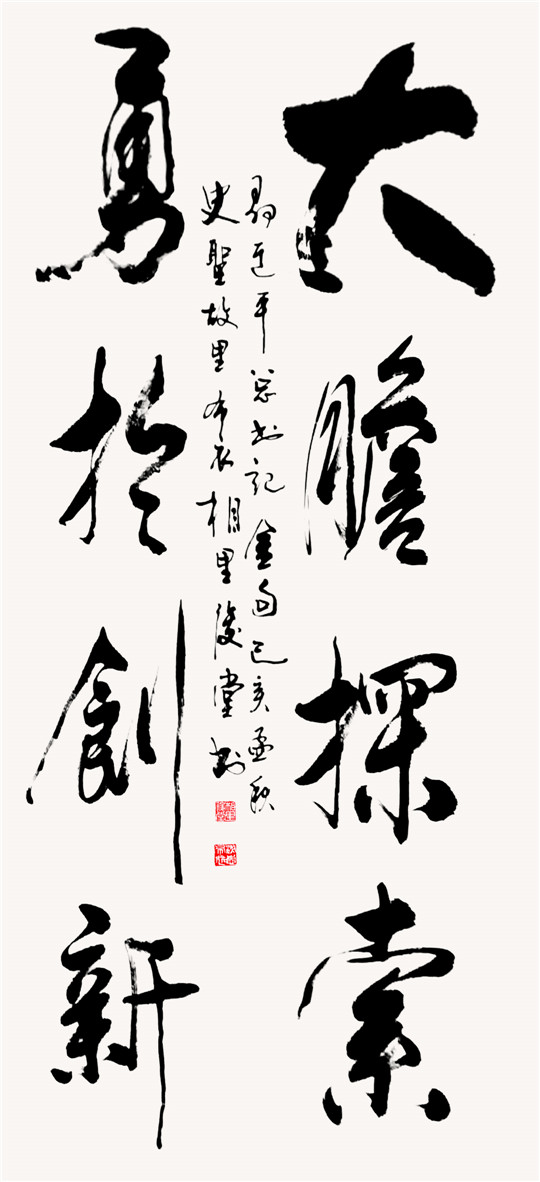 大膽探索
習近平总书記金句己亥孟秋
史聖故里布衣相里俊堂书
勇於創新